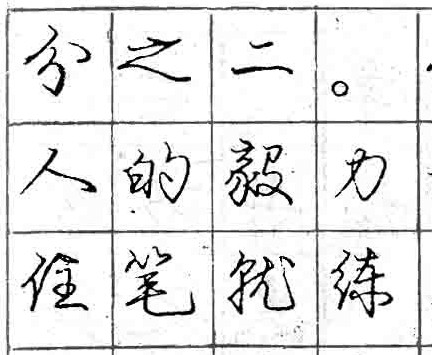 分之二。
人的毅力
住笔就练